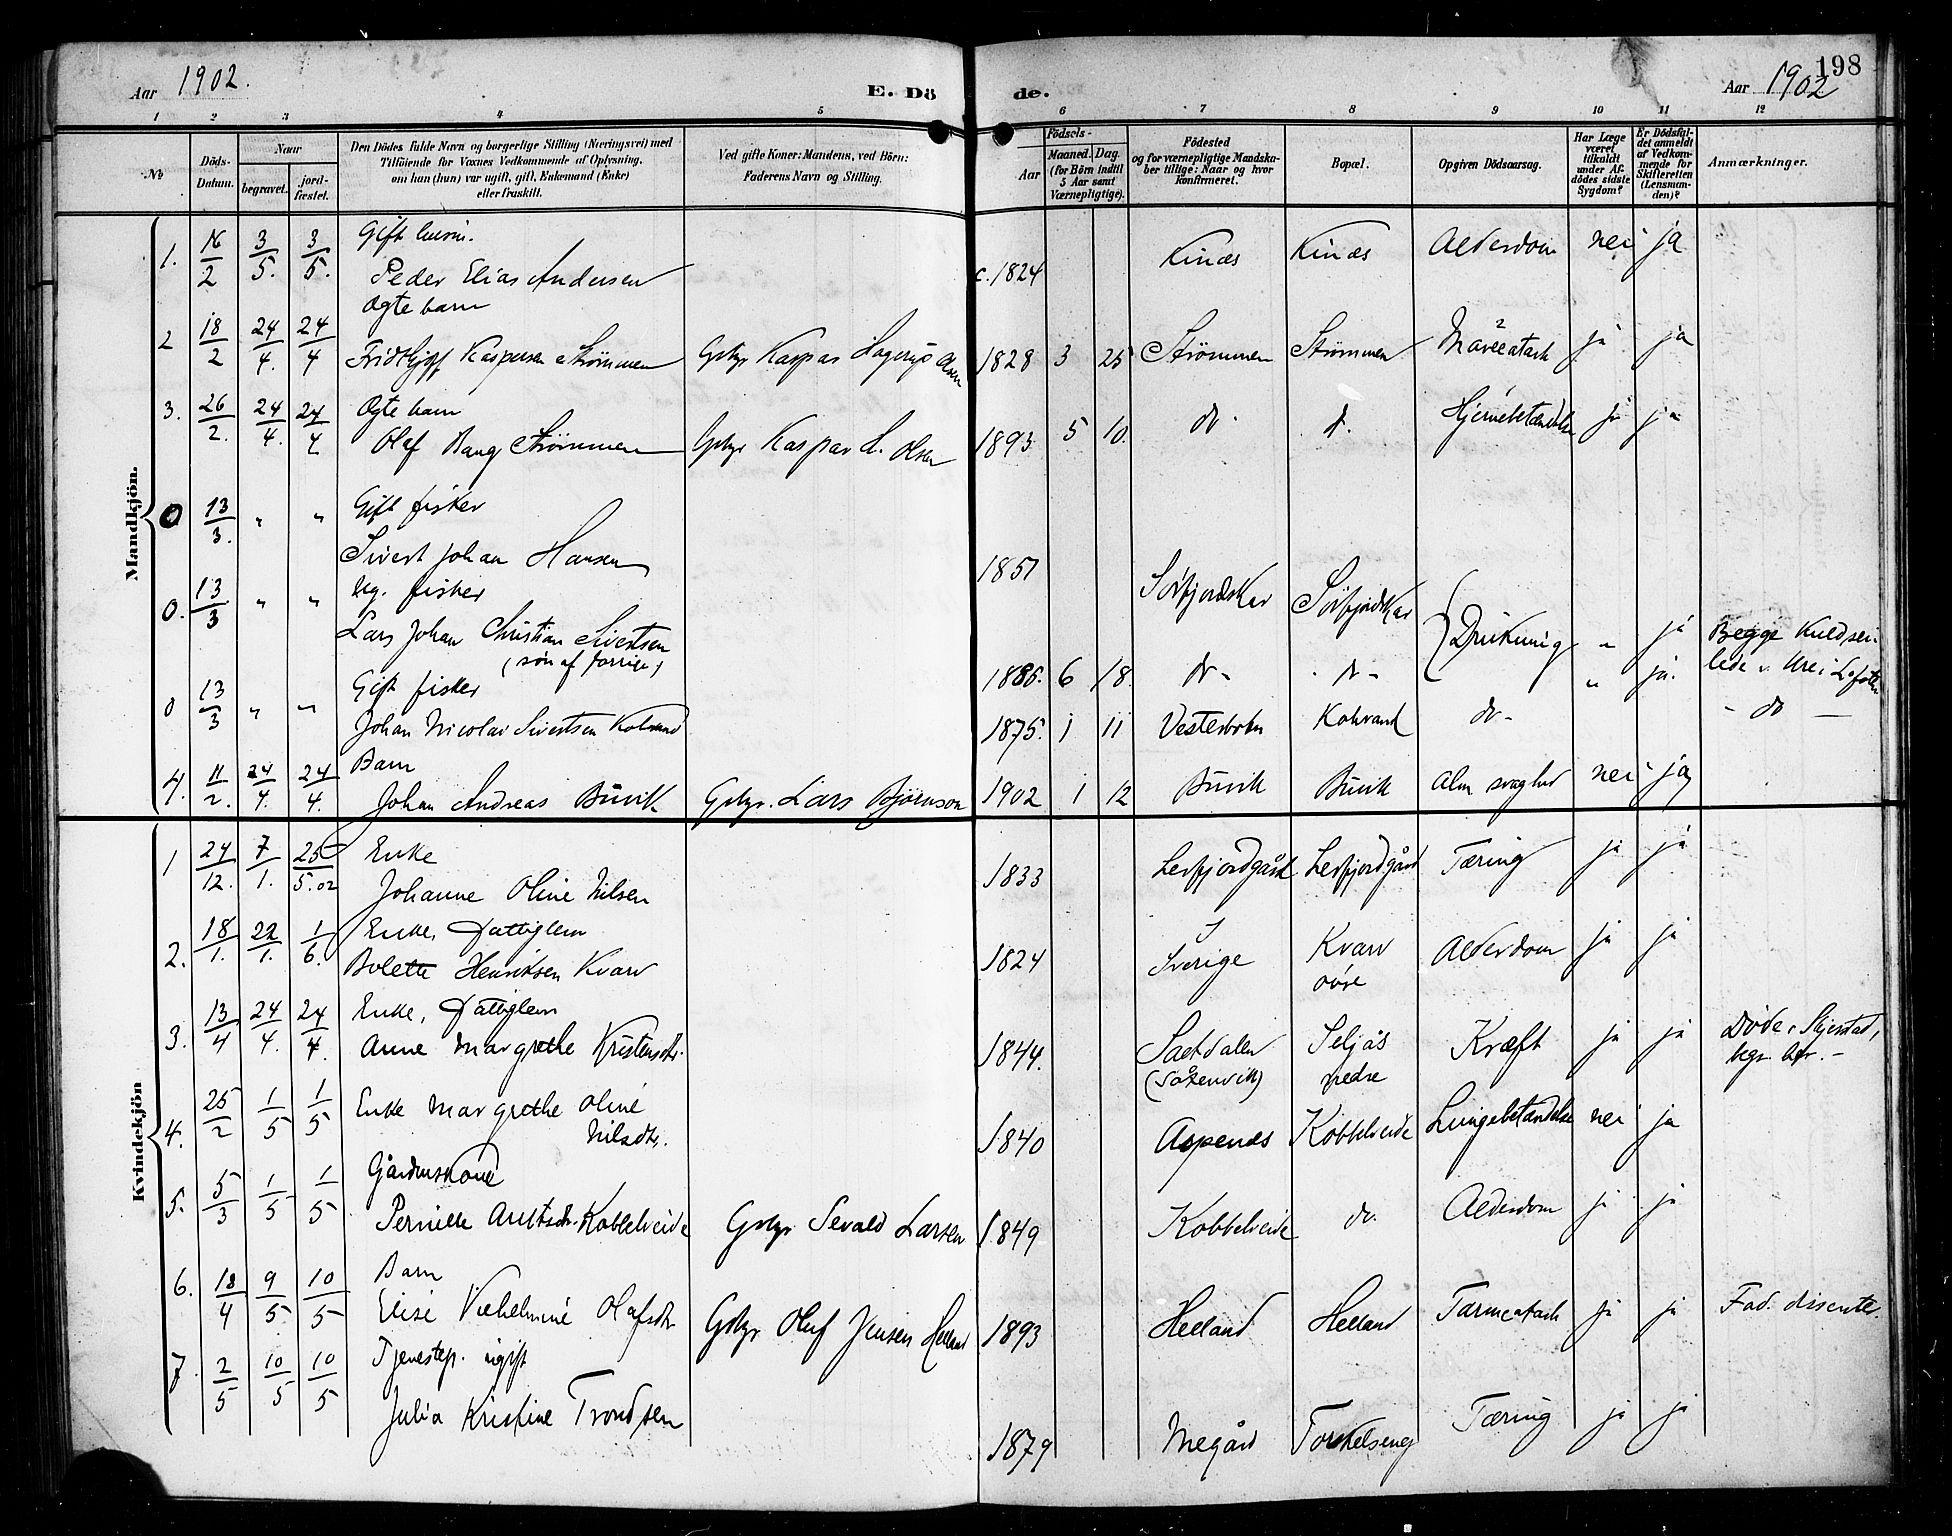 Aar 1902. E. Döde. Aar 1902 198
1 2 3 4 5 6 7 8 9 10 11 12
No Döds-Datum. Naar begravet. jordfæstet. Den Dödes fulde Navn og borgerlige Stilling (Næringsvei) med Tilföiende for Voxnes Vedkommende af Oplysning, om han (hun) var ugift, gift, Enkemand (Enke) eller fraskilt. Ved gifte Koner: Mandens, ved Börn: Faderens Navn og Stilling. Födsels- Aar Maaned. Dag. (for Börn indtil 5 Aar samt Værnepligtige). Födested og for værnepligtige Mandskaber tillige: Naar og hvor konfirmeret. Bopæl. Opgiven Dödsaarsag. Har Læge været tilkaldt under Afdödes sidste Sygdom? Er Dödsfaldet anmeldt af Vedkommende for Skifteretten (Lensmanden)? Anmærkninger.
Mandkjön.
1. 16/2 3/5. 3/5. Gift
Peder Elias Andersen c. 1824 Kinæs Kinæs Alderdom nei ja
2 18/2 24/4. 24/4 Ægte barn
Fridthjof Kaspersen Strømmen Gbgr Kaspar Hagerup Olsen 1828 3 25 Strømmen Strømmen ja ja
3. 26/2. 24/4. 24/4 Ægte barn
Olaf Bang Strømmen Gbgr Kaspar H. Olsen 1893 5 10. do. d. Hjernebetændelse ja ja
0 13/3. " " Gift fisker
Sivert Johan Hansen 1851 Sørfjordskar Sørfjordskar Drukning " ja Begge kuldsei-
0. 13/3 " " Ug. fisker
Lars Johan Christian Sivertsen
(søn af forrige) 1886. 6 18. do - do - " ja. lede v. Ure i Lofoten
0 13/3 " " Gift fisker
Johan Nicolai Sivertsen Kalvand 1875. 1 11 Vesterbotn Kalvand do - - do -
4. 11/2. 24/4. 24/4. Barn
Johan Andreas Buvik Gbgr. Lars Bjørnson 1902 1 12 Buvik Buvik Alm svaghed nei ja
Kvindekjön
1 24/12. 7/1. 25/5.02 Enke
Johanne Oline Nilsen 1833 Leirfjordgård Leirfjordgård Tæring ja ja
2. 18/1. 22/1. 1/6. Enke, Fattiglem
Bolette Henriksen Kvarv 1824 Sverige Kvarv øvre Alderdom ja ja
3. 13/4 24/4. 24/4. Enke, Fattiglem
Anne Margrethe Kristensdtr. 1844. Seljås nedre Kræft ja ja Døde i Skjerstad, begr. her. -
4. 25/2 1/5 1/5 Enke Margrethe Oline
Nilsdtr. 1840 Aspenes Kobbelveide Lungebetændelse nei ja
5. 5/3 1/5 1/5 Gårdmandskone
Pernille Arntsdtr. Kobbelveide Gbgr Sevald Larsen 1849 Kobbelveide do. Alderdom ja ja
6. 18/4 9/5 10/5 Barn
Elise Vilhelmine Olafsdtr Gbgr Oluf Jensen Helland 1893 Helland Helland ja ja Fad. dissenter.
7. 2/5 10/5 10/5 Tjenestep. ugift
Julia Kristine Trondsen 1879 Megård Torkelseng Tæring ja ja